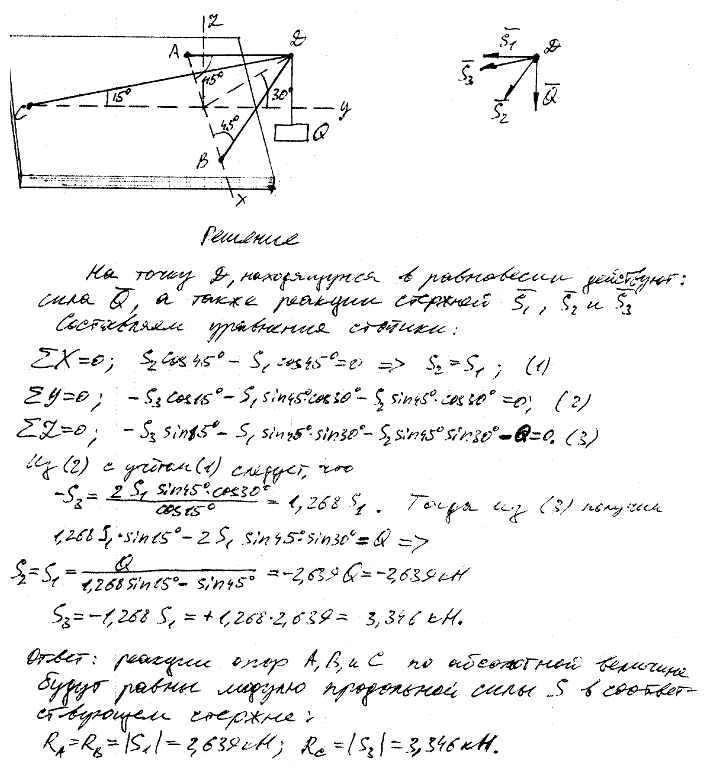 z
A
D
S̄₁
D
S̄₃
45°
15°
30°
C
y
S̄₂
Q̄
45°
Q
B
x
Решение
На точку D, находящуюся в равновесии действуют:
сила Q̄, а также реакции стержней S̄₁, S̄₂ и S̄₃
Составляем уравнения статики:
ΣX=0; S₂cos45° − S₁cos45°=0 => S₂=S₁; (1)
ΣY=0; −S₃cos15° − S₁sin45°cos30° − S₂sin45°·cos30°=0; (2)
ΣZ=0; −S₃sin15° − S₁sin45°·sin30° − S₂sin45°sin30° − Q=0. (3)
Из (2) с учётом (1) следует, что
−S₃ = 2S₁sin45°·cos30° / cos15° = 1,268S₁. Тогда из (3) получим
1,268S₁·sin15° − 2S₁sin45°·sin30° = Q =>
S₂=S₁= Q / 1,268sin15° − sin45° = −2,639Q = −2,639кН
S₃ = −1,268S₁ = +1,268·2,639 = 3,346кН.
Ответ: реакции опор A, B, и C по абсолютной величине
будут равны модулю продольной силы S в соответ-
ствующем стержне:
R_A=R_B=|S₁|=2,639кН; R_C=|S₃|=3,346кН.